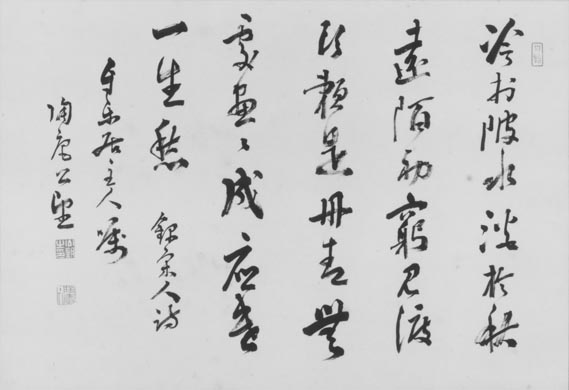 冷於陂水淡於秋
遠陌初窮見渡
頭賴是丹青無
處畫〻成應遣
一生愁 錄宋人詩
主人囑
公望